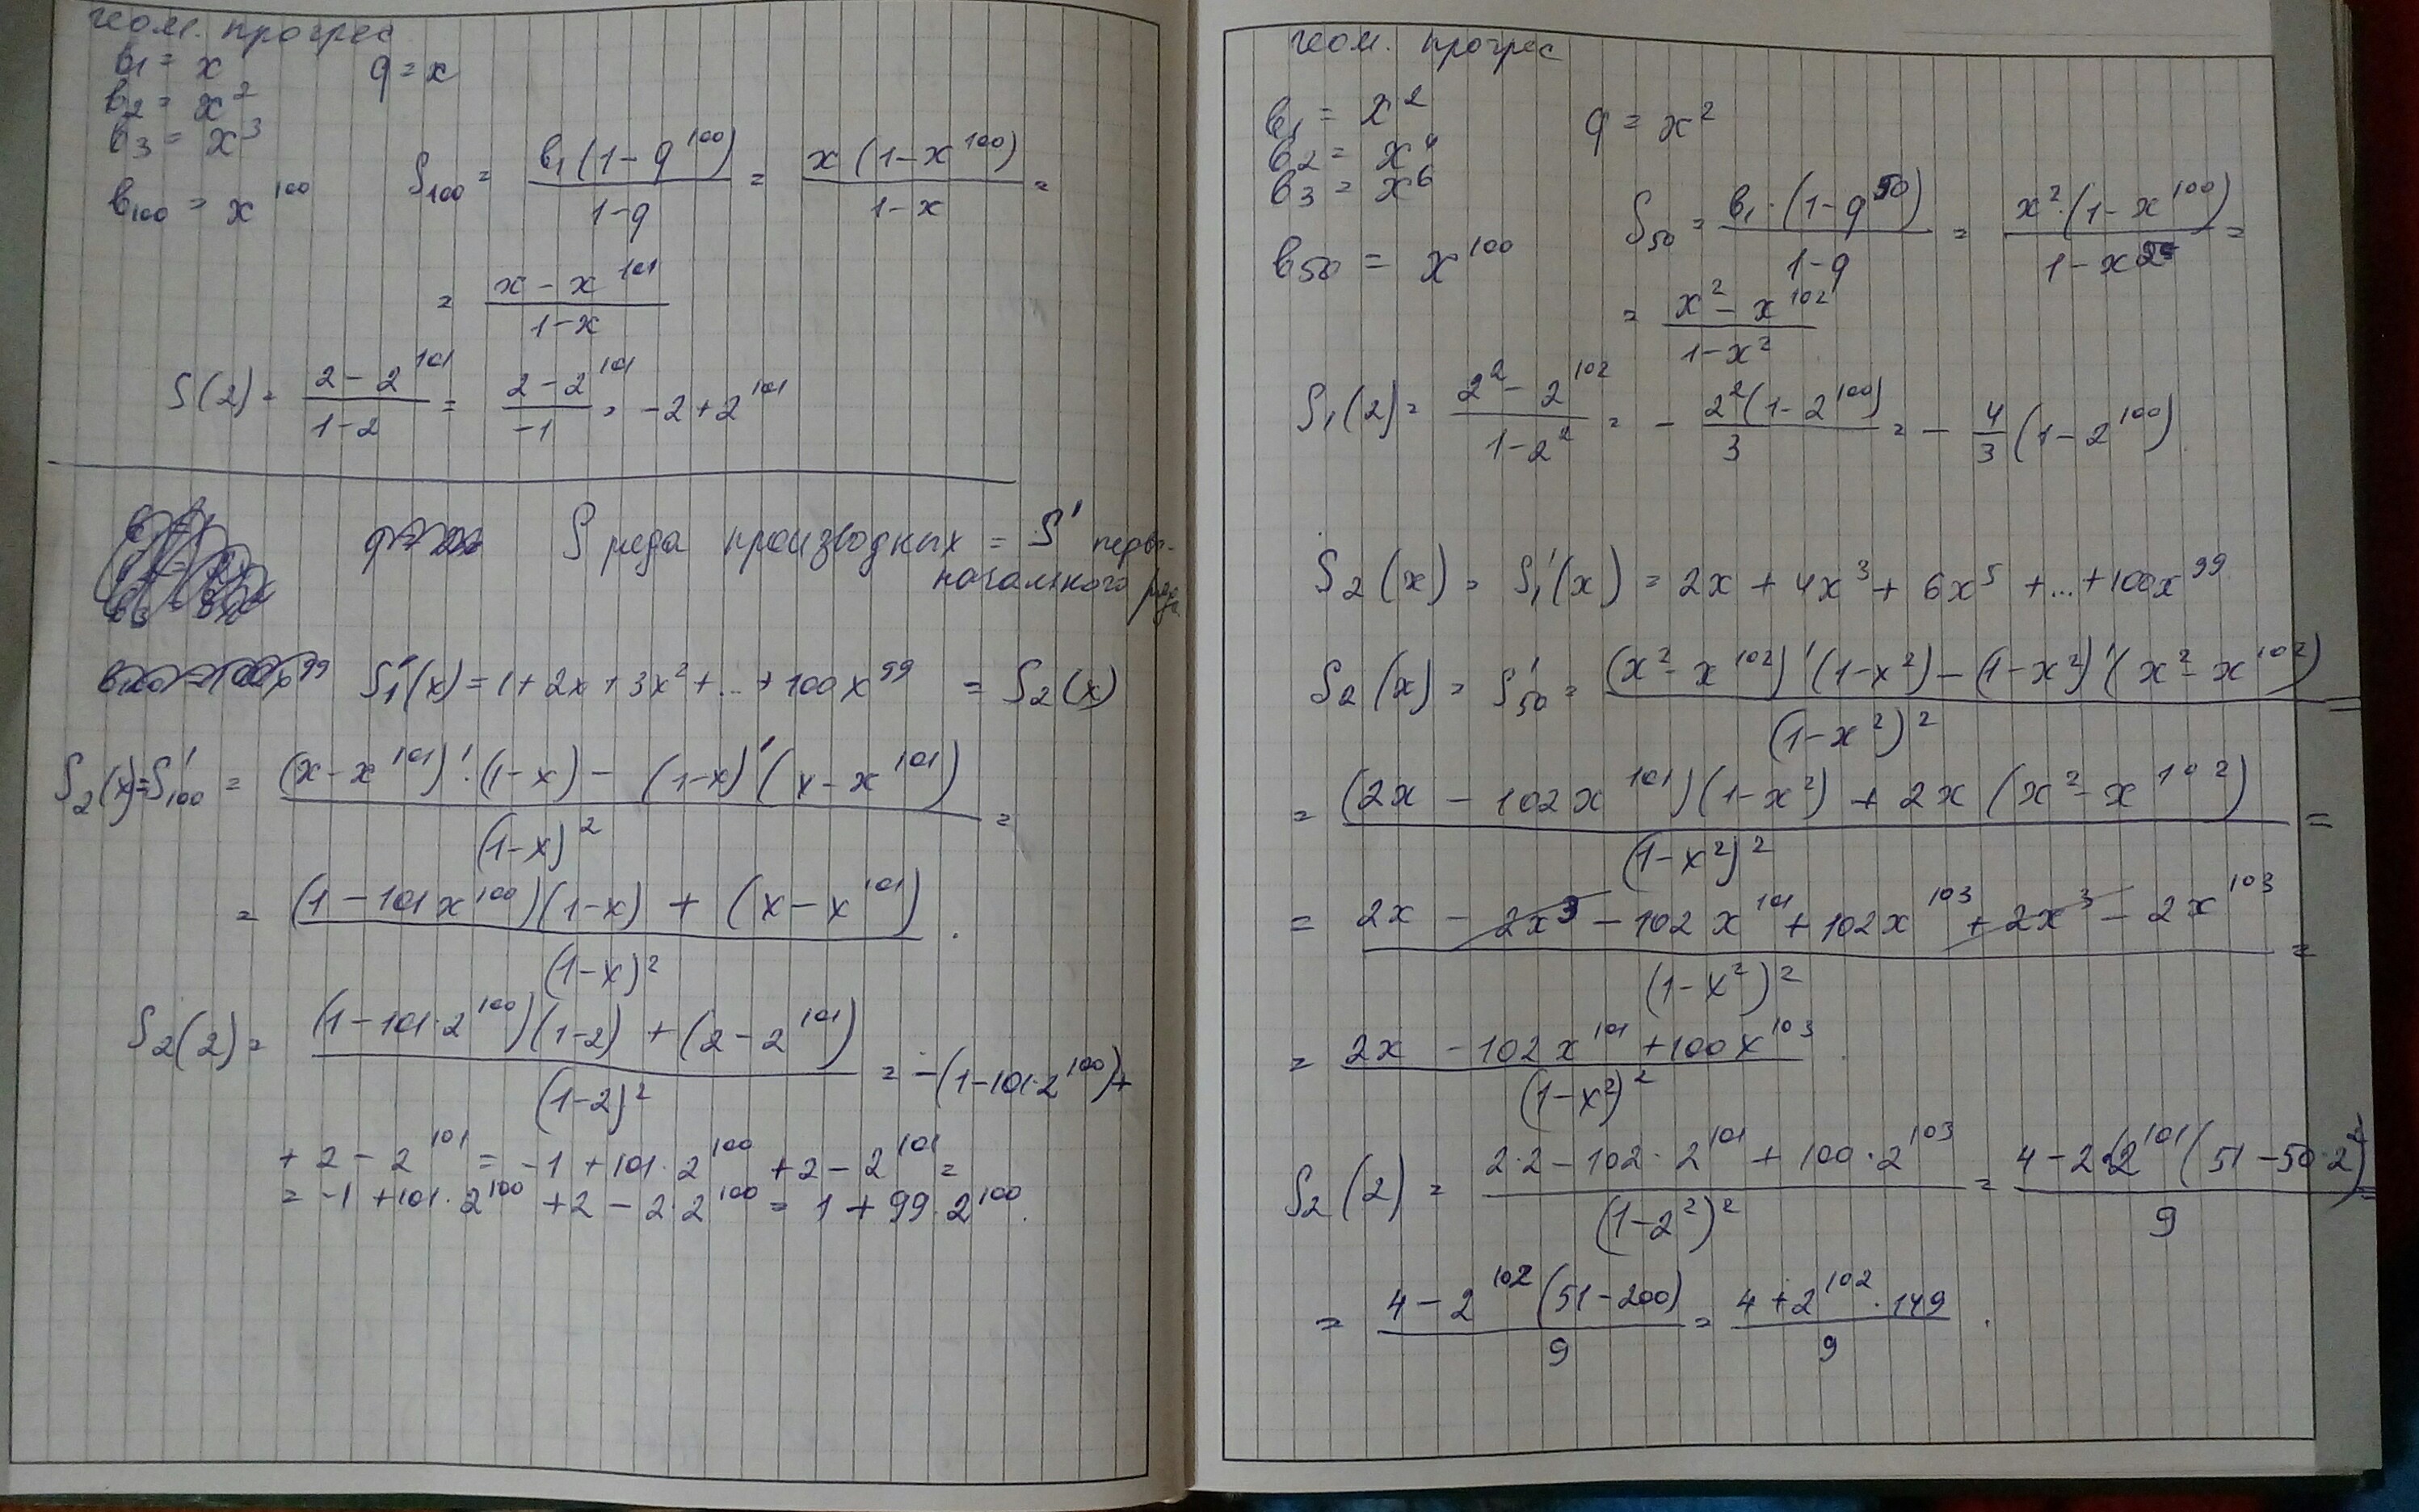 геом. прогрес
b₁ = x q = x
b₂ = x²
b₃ = x³
b₁₀₀ = x¹⁰⁰ S₁₀₀ = b₁(1-q¹⁰⁰)/(1-q) = x(1-x¹⁰⁰)/(1-x) =
= (x-x¹⁰¹)/(1-x)
S(2) = (2-2¹⁰¹)/(1-2) = (2-2¹⁰¹)/(-1) = -2+2¹⁰¹
S ряда производных = S' перво-
начального ряда
S₁'(x) = 1+2x+3x²+...+100x⁹⁹ = S₂(x)
S₂(x)=S'₁₀₀ = ((x-x¹⁰¹)'·(1-x) - (1-x)'(x-x¹⁰¹))/(1-x)² =
= ((1-101x¹⁰⁰)(1-x) + (x-x¹⁰¹))/(1-x)².
S₂(2) = ((1-101·2¹⁰⁰)(1-2) + (2-2¹⁰¹))/(1-2)² = -(1-101·2¹⁰⁰)+
+ 2 - 2¹⁰¹ = -1+101·2¹⁰⁰ +2-2¹⁰¹ =
= -1+101·2¹⁰⁰ +2-2·2¹⁰⁰ = 1+99·2¹⁰⁰.
геом. прогрес
b₁ = x² q = x²
b₂ = x⁴
b₃ = x⁶
b₅₀ = x¹⁰⁰ S₅₀ = b₁·(1-q⁵⁰)/(1-q) = x²·(1-x¹⁰⁰)/(1-x²) =
= (x²-x¹⁰²)/(1-x²)
S₁(2) = (2²-2¹⁰²)/(1-2²) = - 2²(1-2¹⁰⁰)/3 = - 4/3 (1-2¹⁰⁰).
S₂(x) = S₁'(x) = 2x+4x³+6x⁵+...+100x⁹⁹
S₂(x) = S'₅₀ = ((x²-x¹⁰²)'(1-x²)-(1-x²)'(x²-x¹⁰²))/(1-x²)² =
= ((2x-102x¹⁰¹)(1-x²)+2x(x²-x¹⁰²))/(1-x²)² =
= (2x-2x³-102x¹⁰¹+102x¹⁰³+2x³-2x¹⁰³)/(1-x²)² =
= (2x-102x¹⁰¹+100x¹⁰³)/(1-x²)².
S₂(2) = (2·2-102·2¹⁰¹+100·2¹⁰³)/(1-2²)² = (4-2·2¹⁰¹(51-50·2²))/9 =
= (4-2¹⁰²(51-200))/9 = (4+2¹⁰²·149)/9.